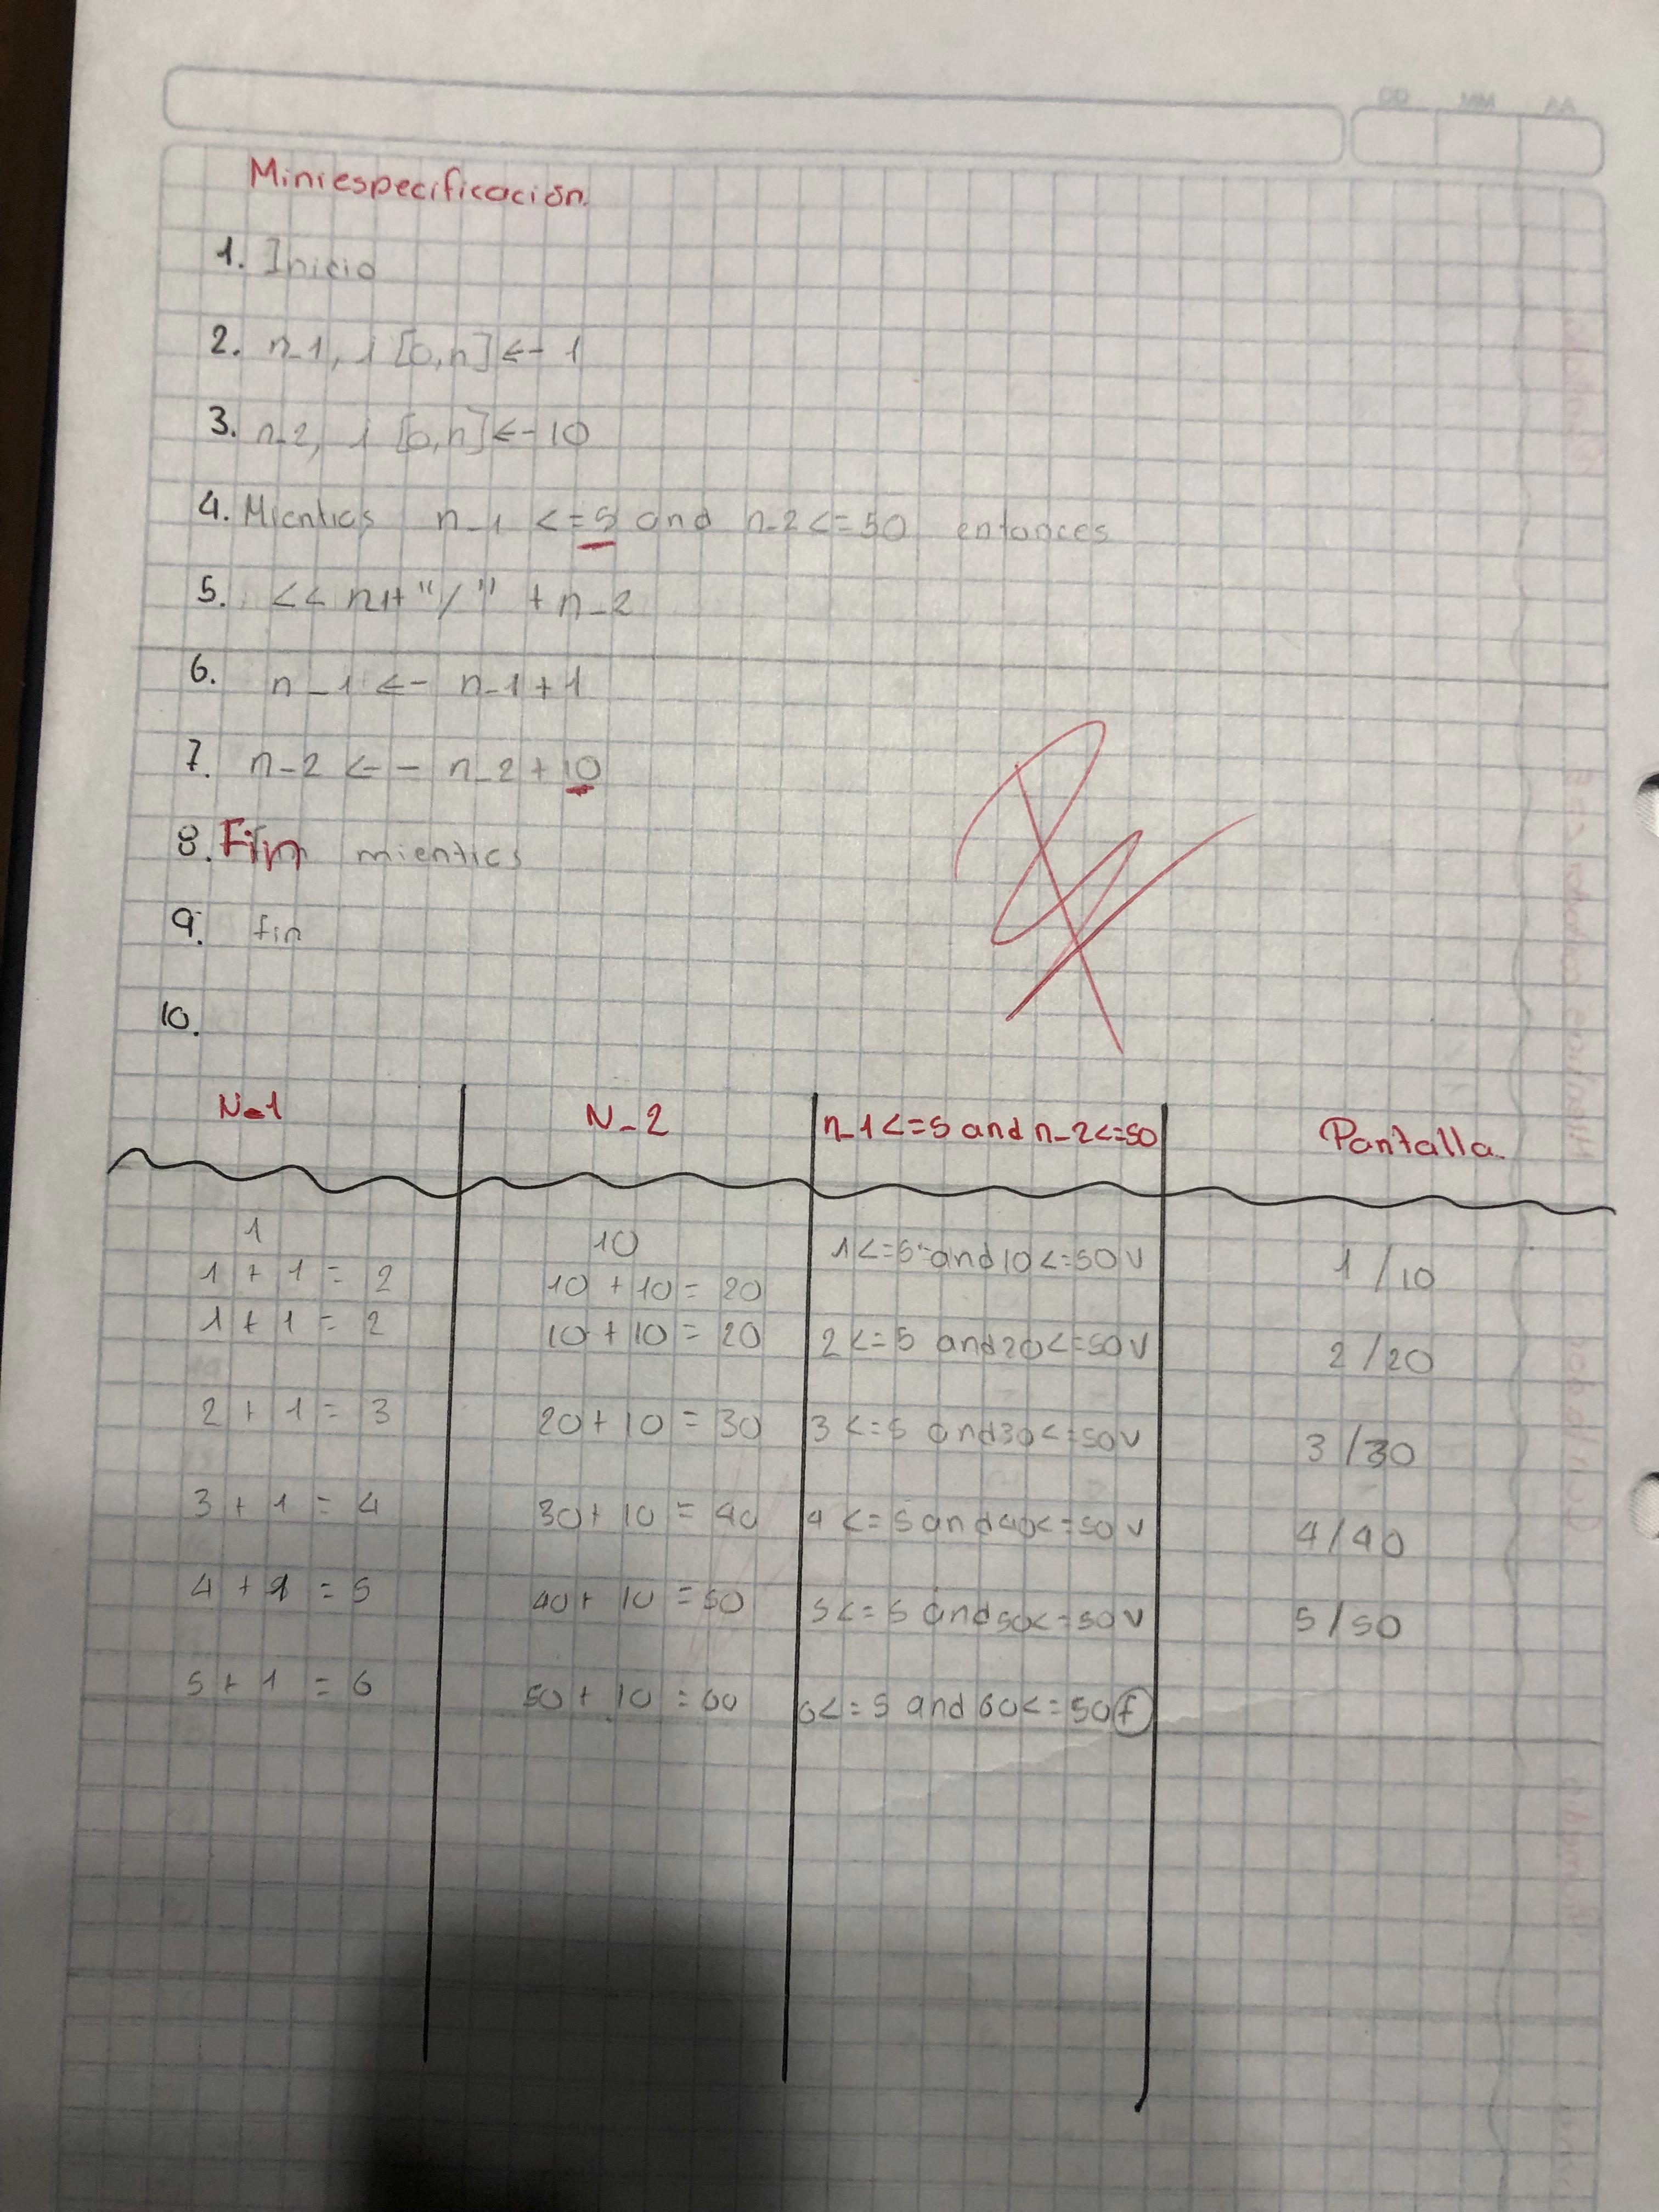 AA MM DD
Miniespecificación.
1. Inicio
2. n_1, i [0,n] <- 1
3. n_2, i [0,n] <- 10
4. Mientras n_1 <= 5 and n_2 <= 50 entonces
5. << n1+ "/" + n_2
6. n_1 <- n_1 + 1
7. n_2 <- n_2 + 10
8. Fin mientras
9. fin
10.
N_1 N_2 n_1<=5 and n_2<=50 Pantalla
1 10 1<=5 and 10<=50 v 1/10
1 + 1 = 2 10 + 10 = 20
1 + 1 = 2 10 + 10 = 20 2<=5 and 20<=50 v 2/20
2 + 1 = 3 20 + 10 = 30 3<=5 and 30<=50 v 3/30
3 + 1 = 4 30 + 10 = 40 4<=5 and 40<=50 v 4/40
4 + 1 = 5 40 + 10 = 50 5<=5 and 50<=50 v 5/50
5 + 1 = 6 50 + 10 = 60 6<=5 and 60<=50 f